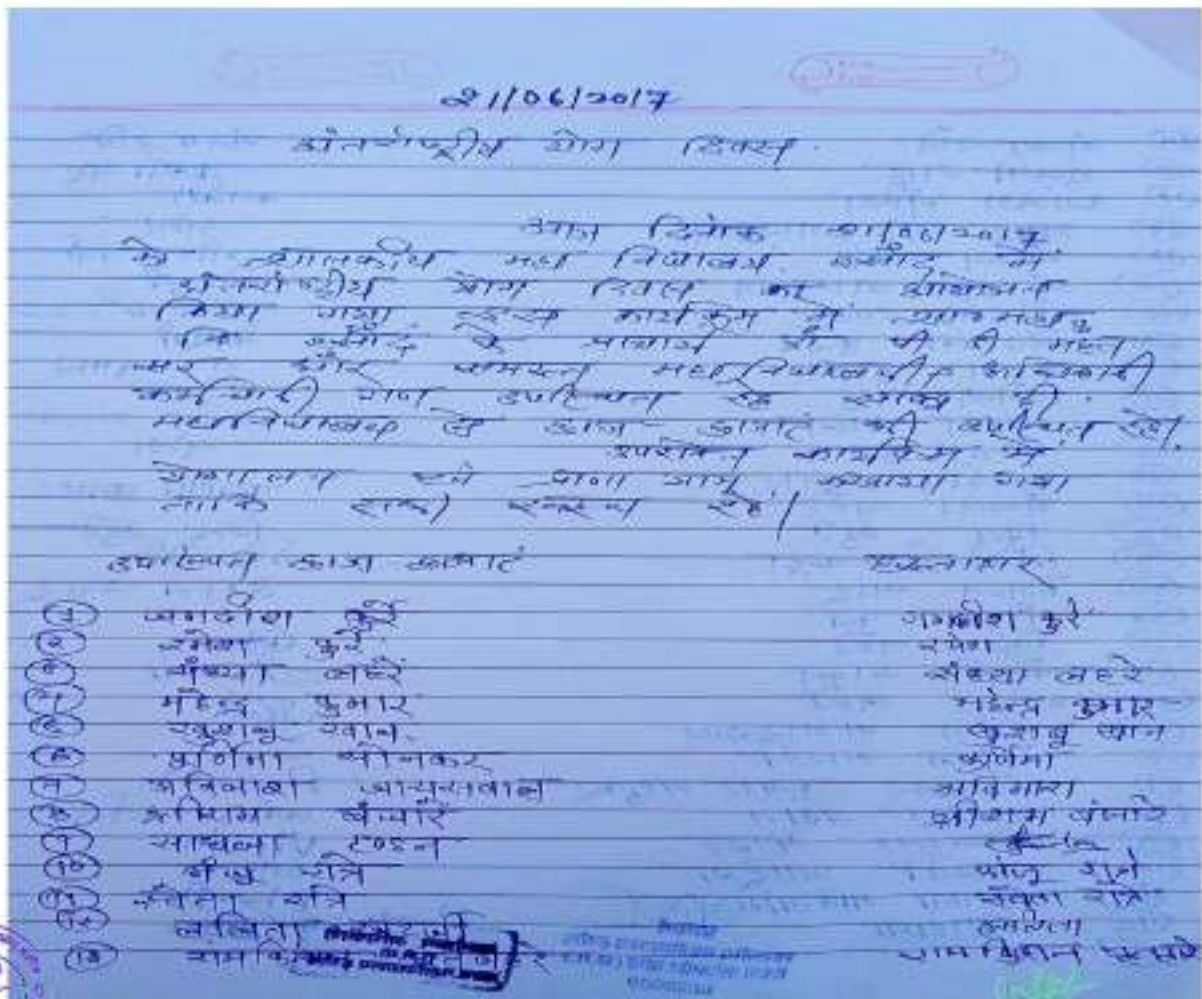 21/06/2017
अंतर्राष्ट्रीय योग दिवस
आज दिनांक 21/06/2017
को शासकीय महाविद्यालय में
अंतर्राष्ट्रीय योग दिवस का आयोजन
किया गया इस कार्यक्रम में
के प्राचार्य
सर और समस्त महाविद्यालयीन अधिकारी
कर्मचारी गण उपस्थित रहे साथ ही
महाविद्यालय के छात्र छात्राएं भी उपस्थित रहे।
उपरोक्त कार्यक्रम में
योगासन एवं करवाया गया
ताकि स्वस्थ रहे।
उपस्थित छात्र छात्राएं हस्ताक्षर
1 जगदीश कुर्रे जगदीश कुर्रे
2 रमेश कुर्रे रमेश
3 संध्या लहरे संध्या लहरे
4 महेन्द्र कुमार महेन्द्र कुमार
5 खुशबु खान खुशबु खान
6 पूर्णिमा पूर्णिमा
7 अविनाश जायसवाल अविनाश
8 श्रीराम बंजारे श्रीराम बंजारे
9 साधना टण्डन
10 मंजु रात्रे मंजु रात्रे
11 रात्रे रात्रे
12 ललिता ललिता
13